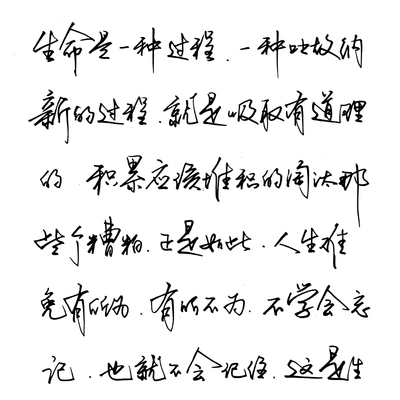 生命是一种过程.一种吐故纳
新的过程.就是吸取有道理
的 积累应该堆积的淘汰那
些个糟粕.正是如此.人生难
免有所为.有所不为.不学会忘
记.也就不会记住.这是生